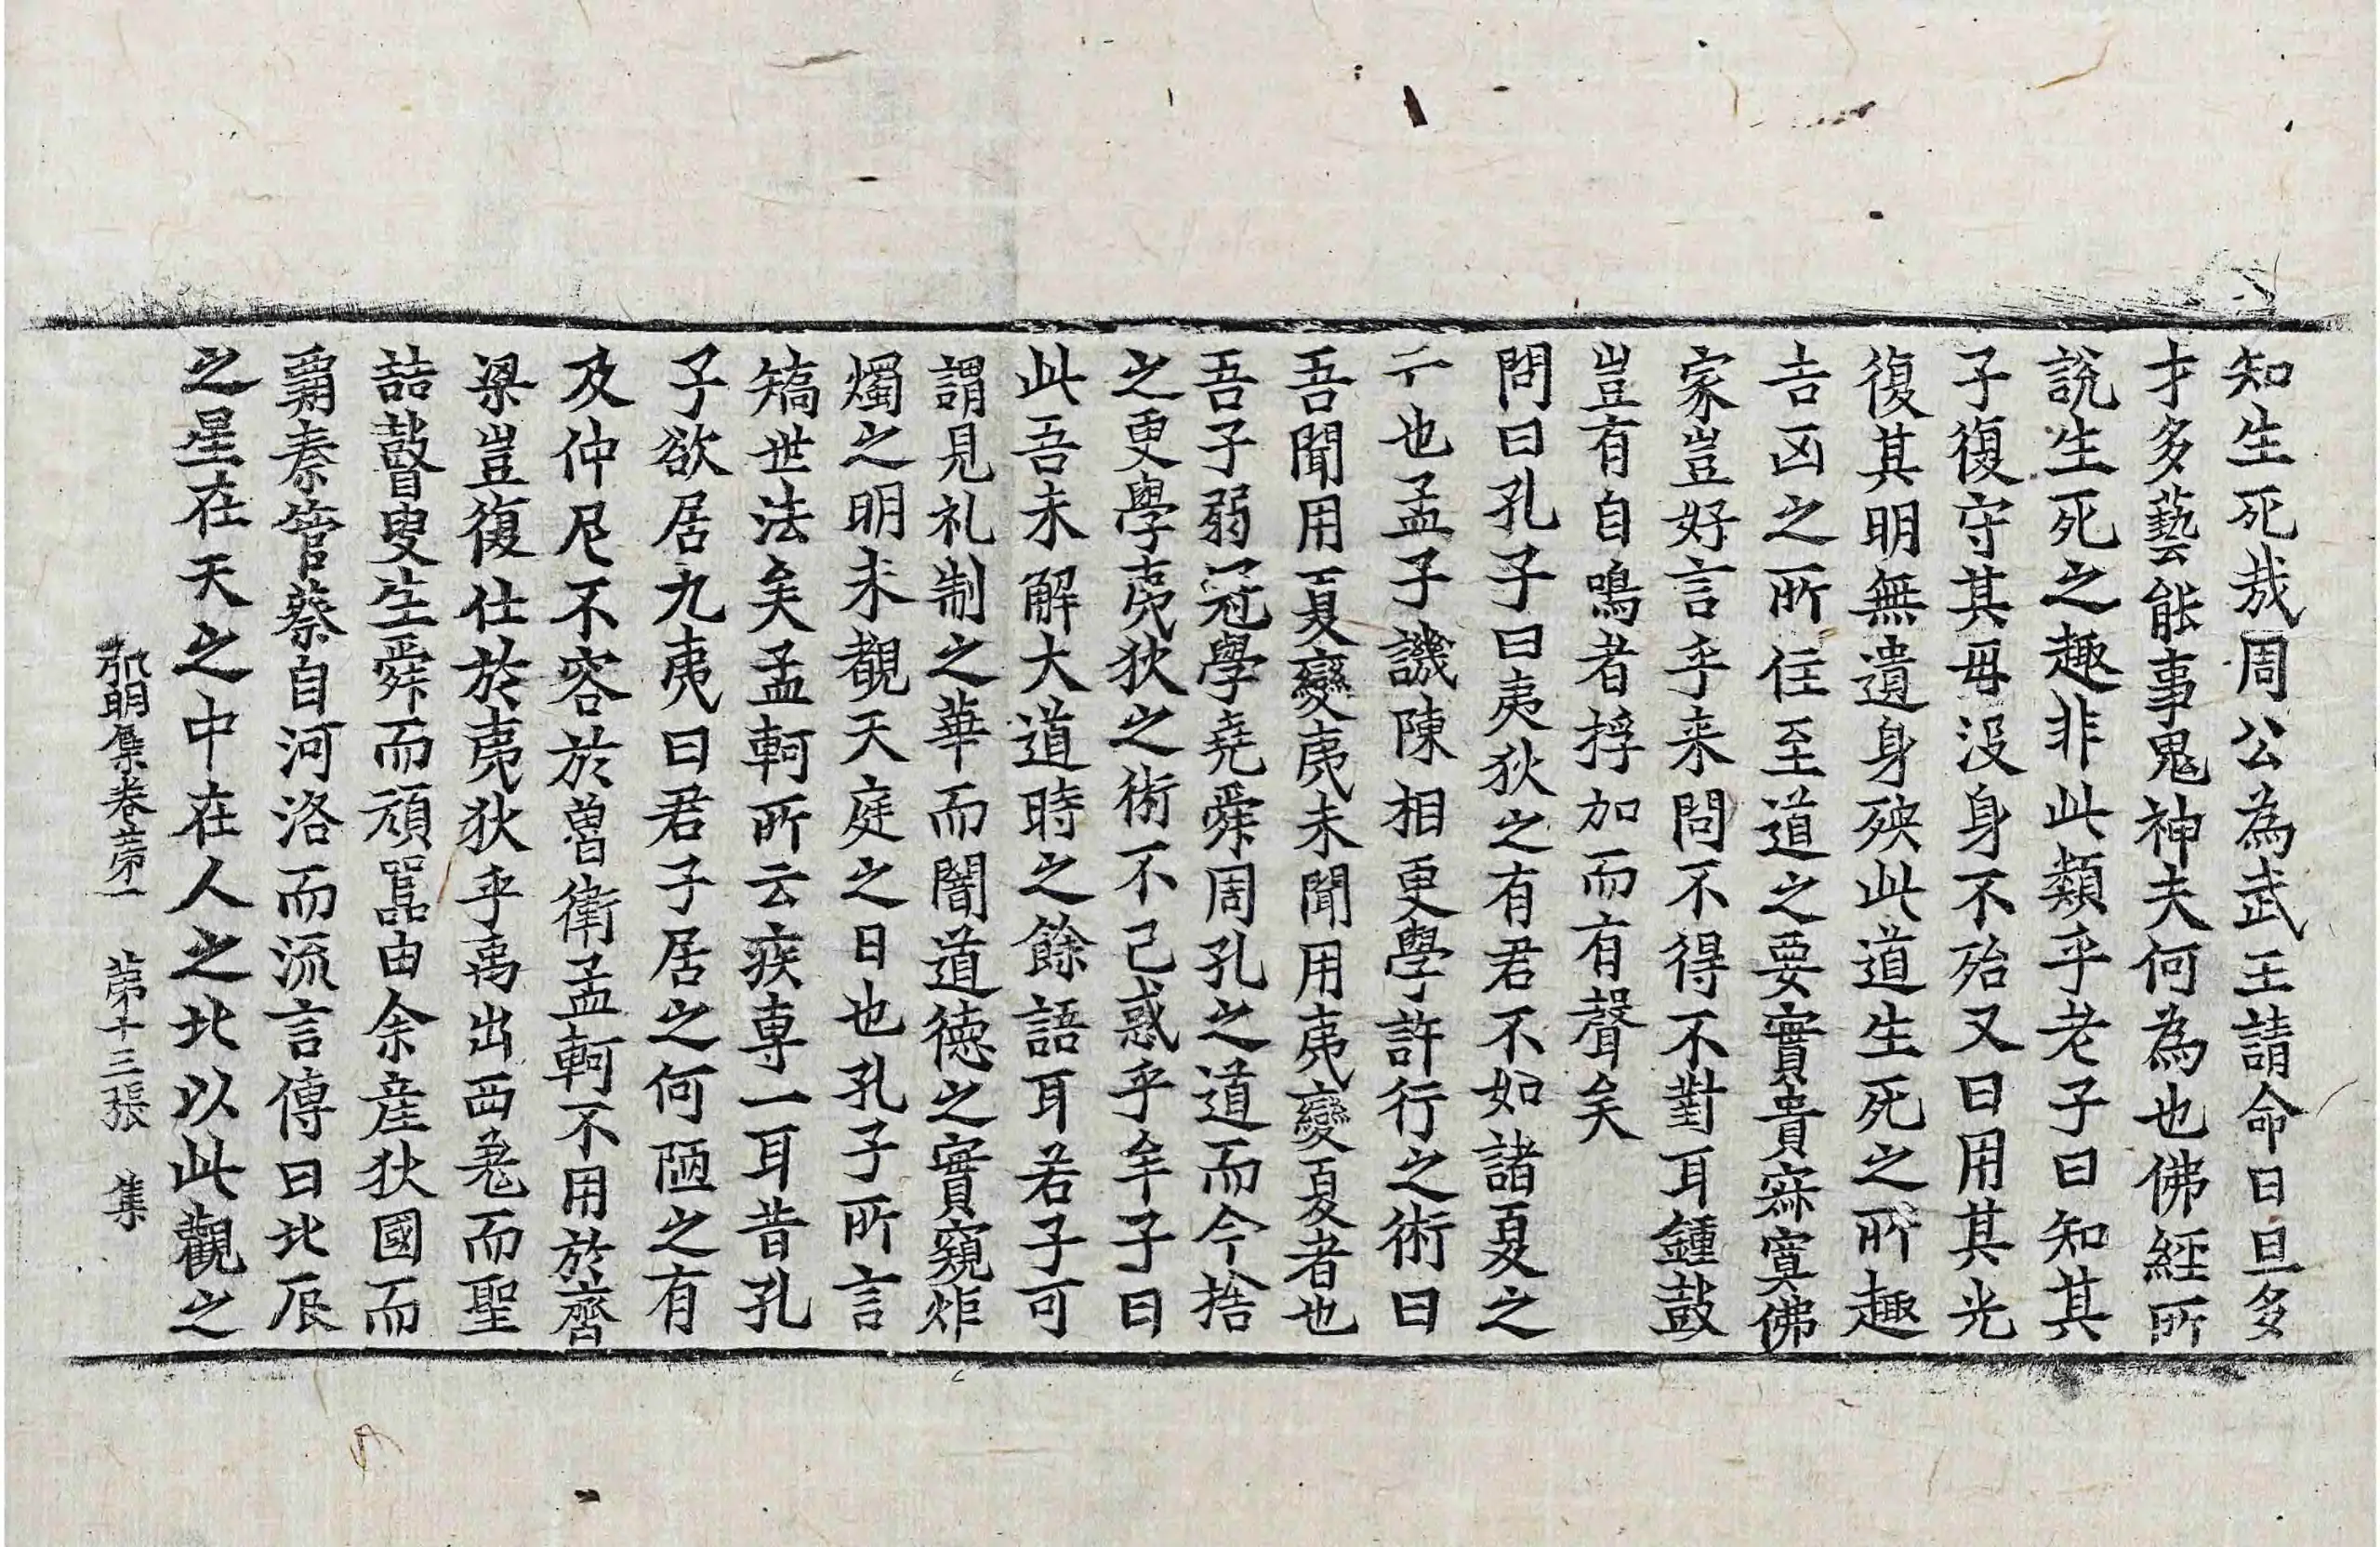 知生死哉周公為武王請命曰旦多
才多藝能事鬼神夫何為也佛經所
說生死之趣非此類乎老子曰知其
子復守其母沒身不殆又曰用其光
復其明無遺身殃此道生死之所趣
吉凶之所住至道之要實貴寂寞佛
家豈好言乎来問不得不對耳鍾鼓
豈有自鳴者捊加而有聲矣
問曰孔子曰夷狄之有君不如諸夏之
亡也孟子譏陳相更學許行之術曰
吾聞用夏變夷未聞用夷變夏者也
吾子弱冠學堯舜周孔之道而今捨
之更學夷狄之術不已惑乎牟子曰
此吾未解大道時之餘語耳若子可
謂見礼制之華而闇道德之實窺炬
燭之明未覩天庭之日也孔子所言
矯世法矣孟軻所云疾専一耳昔孔
子欲居九夷曰君子居之何陋之有
及仲尼不容於魯衛孟軻不用於齊
梁豈復仕於夷狄乎禹出西羌而聖
喆瞽叟生舜而頑嚚由余産狄國而
霸秦管蔡自河洛而流言傳曰北辰
之星在天之中在人之北以此觀之
弘明集卷第一 第十三張 集